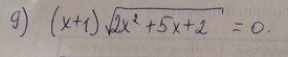 9) (x+1) √(2x² + 5x + 2) = 0.